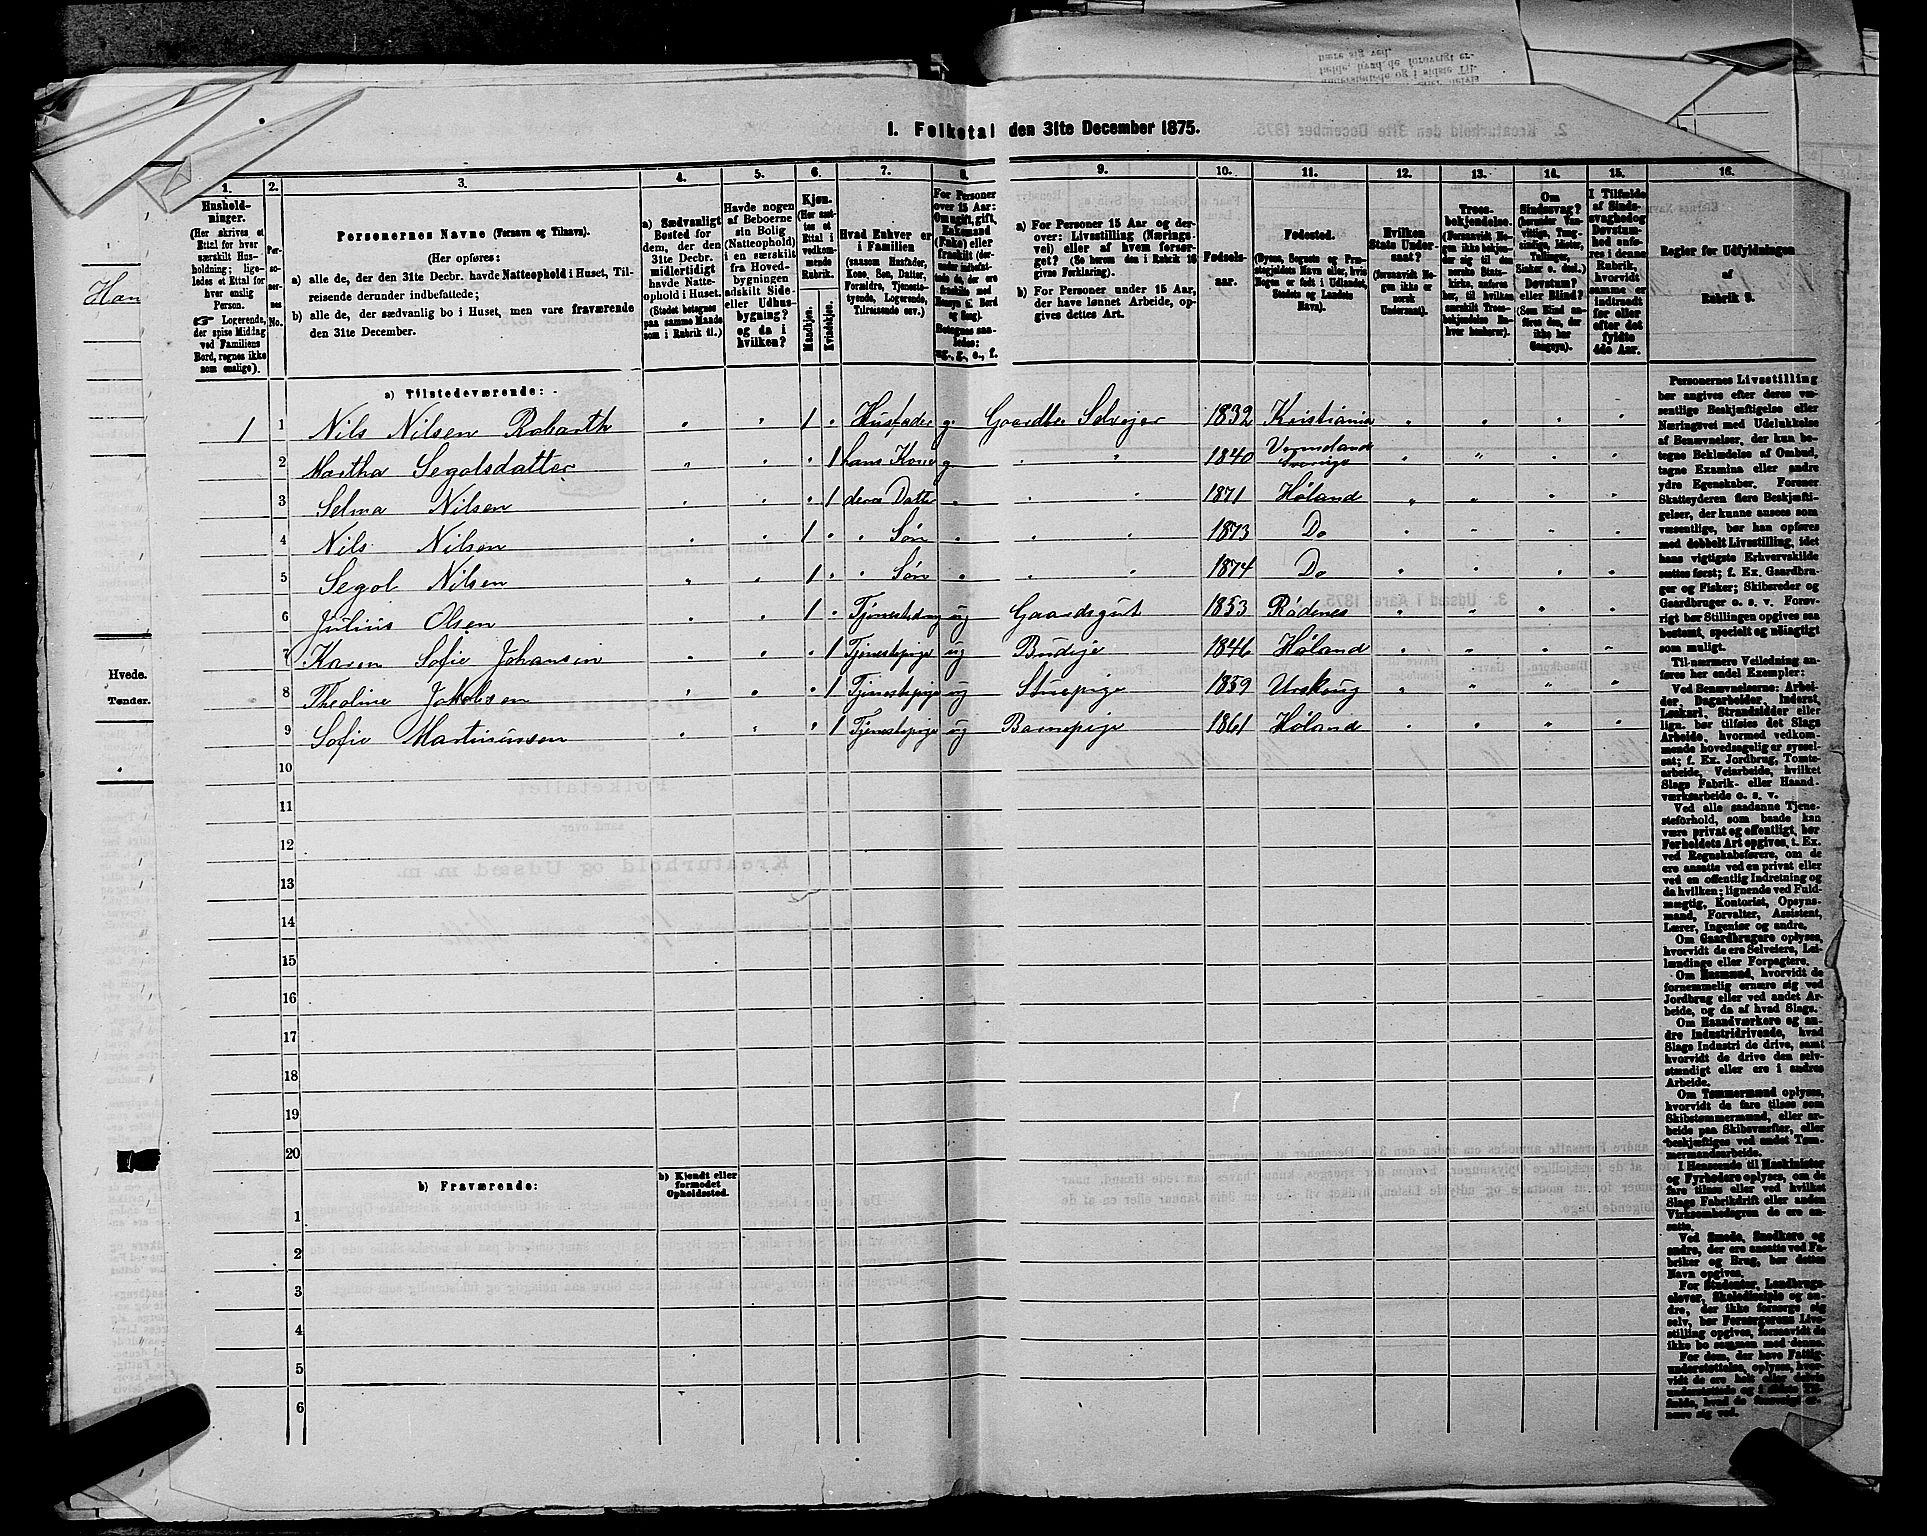 1. Folketal den 31te December 1875.
1. 2. 3. 4. 5. 6. 7. 8. 9. 10. 11. 12. 13. 14. 15. 16.
Hushold-
ninger.
(Her skrives et
Ettal for hver
særskilt Hus-
holdning; lige-
ledes et Ettal for
hver enslig
Person.
☞ Logerende,
der spise Middag
ved Familiens
Bord, regnes ikke
som enslige).
Per-
so-
ner-
nes
No.
Personernes Navne (Fornavn og Tilnavn).
(Her opføres:
a) alle de, der den 31te Decbr. havde Natteophold i Huset, Til-
reisende derunder indbefattede;
b) alle de, der sædvanlig bo i Huset, men vare fraværende
den 31te December.
a) Sædvanligt
Bosted for
dem, der den
31te Decbr.
midlertidigt
havde Natte-
ophold i Huset.
(Stedet betegnes
paa samme Maade
som i Rubrik 11.)
Havde nogen
af Beboerne
sin Bolig
(Natteophold)
i en særskilt
fra Hoved-
bygningen
adskilt Side-
eller Udhus-
bygning?
og da i
hvilken?
Kjøn.
(Her sæt-
tes et
Ettal i
vedkom-
mende
Rubrik.
Mandkjøn.
Kvindekjøn.
Hvad Enhver er
i Familien
(saasom Husfader,
Kone, Søn, Datter,
Forældre, Tjeneste-
tyende, Logerende,
Tilreisende osv.)
For Personer
over 15 Aar:
Om ugift, gift,
Enkemand
(Enke) eller
fraskilt
Betegnes saa-
ledes:
ug., g., e., f.
a) For Personer 15 Aar og der-
over: Livsstilling (Nærings-
vei) eller af hvem forsør-
get? (Se herom den i Rubrik 16
givne Forklaring).
b) For Personer under 15 Aar,
der have lønnet Arbeide, op-
gives dettes Art.
Fødsels-
aar.
Fødested.
(Byens, Sognets og Præ-
stegjeldets Navn eller, hvis
Nogen er født i Udlandet,
Stedets og Landets
Navn).
Hvilken
Stats Under-
saat?
(forsaavidt No-
gen ikke er
norsk
Undersaat).
Troes-
bekjendelse.
(Forsaavidt No-
gen ikke bekjen-
der sig til den
norske Stats-
kirke, anføres
her, til hvilken
særskilt Troes-
bekjendelse En-
hver henhører).
Om
Sindssvag?
Døvstum?
eller Blind?
I Tilfælde
af Sinds-
svaghed og
Døvstum-
hed anfø-
res i denne
Rubrik,
hvorvidt
samme er
indtraadt
før eller
efter det
fyldte
4de Aar.
Regler for Udfyldningen
af
Rubrik 9.
a) Tilstedeværende:
1 1 Nils Nilsen Robarth " " 1 " Husfader g. Gaardbr. Selveier 1832 Kristiania " " " "
2 Martha Segolsdatter " " " 1 hans Kone g. " " 1840 Vermeland Sverige " " " "
3 Selma Nilsen " " " 1 deres Datter " " " 1871 Høland " " " "
4 Nils Nilsen " " 1 " " Søn " " " 1873 Do " " " "
5 Segol Nilsen " " 1 " " Søn " " " 1874 Do " " " "
6 Julius Olsen " " 1 " Tjenestedreng ug Gaardsgut 1853 Rødenes " " " "
7 Karen Sofie Johansen " " " 1 Tjenestepige ug Budeje 1846 Høland " " " "
8 Theoline Jakobsen " " " 1 Tjenestepige ug Stuepige 1859 Urskoug " " " "
9 Sofie Martinussen " " " 1 Tjenestepige ug Barnepige 1861 Høland " " " "
10
11
12
13
14
15
16
17
18
19
20
b) Fraværende:
b) Kjendt eller
formodet
Opholdssted.
1
2
3
4
5
6
Personernes Livsstilling
bør angives efter deres væ-
sentlige Beskjæftigelse eller
Næringsvei med Udelukkelse
af Benævnelser, der kun be-
tegne Beklædelse af Ombud,
tagne Examina eller andre
ydre Egenskaber. Forener
Skatteyderen flere Beskjæfti-
gelser, der kunne ansees som
væsentlige, bør han opføres
med dobbelt Livsstilling, idet
hans vigtigste Erhvervskilde
sættes først; f. Ex. Gaardbru-
ger og Fisker; Skibsreder og
Gaardbruger o. s. v. Forøv-
rigt bør Stillingen opgives saa
bestemt, specielt og nøiagtigt
som muligt.
Til nærmere Veiledning an-
føres her endel Exempler:
Ved Benævnelserne: Arbei-
der, Dagarbeider, Inderst,
Løskarl, Strandsidder eller
lign. bør tilføies det Slags
Arbeide, hvormed vedkom-
mende hovedsagelig er syssel-
sat; f. Ex. Jordbrug, Tomte-
arbeide, Veiarbeide, hvilket
Slags Fabrik- eller Haand-
værksarbeide o. s. v.
Ved alle saadanne Tjene-
steforhold, som baade kan
være privat og offentligt, bør
Forholdets Art opgives, t. Ex.
ved Regnskabsførere, om de
ere ansatte ved en privat eller
ved en offentlig Indretning og
da hvilken; lignende ved Fuld-
mægtig, Kontorist, Opsyns-
mand, Forvalter, Assistent,
Lærer, Ingeniør og andre.
Om Gaardbrugere oplyses,
hvorvidt de ere Selveiere, Lei-
lændinge eller Forpagtere.
Om Husmænd, hvorvidt de
fornemmelig ernære sig ved
Jordbrug eller ved andet Ar-
beide, og da af hvad Slags.
Om Haandværkere og an-
dre Industridrivende, hvad
Slags Industri de drive, samt
hvorvidt de drive den selv-
stændigt eller ere i andres
Arbeide.
Om Tømmermænd oplyses,
hvorvidt de fare tilsøs som
Skibstømmermænd, eller ar-
beide paa Skibsværfter, eller
beskjæftiges ved andet Tøm-
mermandsarbeide.
I Henseende til Maskinister
og Fyrbødere oplyses, om de
fare tilsøs eller ved hvilket
Slags Fabrikdrift eller anden
Virksomhedsgren de ere an-
satte.
Ved Smede, Snedkere og
andre, der ere ansatte ved Fa-
briker og Brug, bør dettes
Navn opgives.
For Studenter, Landbrugs-
elever, Skoledisciple og an-
dre, der ikke forsørge sig
selv, bør Forsørgerens Livs-
stilling opgives, forsaavidt de
ikke bo sammen med denne.
For dem, der have Fattig-
understøttelse, oplyses, hvor-
vidt de ere helt eller delvis
understøttede og i sidste Til-
fælde, hvad de forøvrigt er-
nære sig ved.
Han
Hvede.
Tønder.